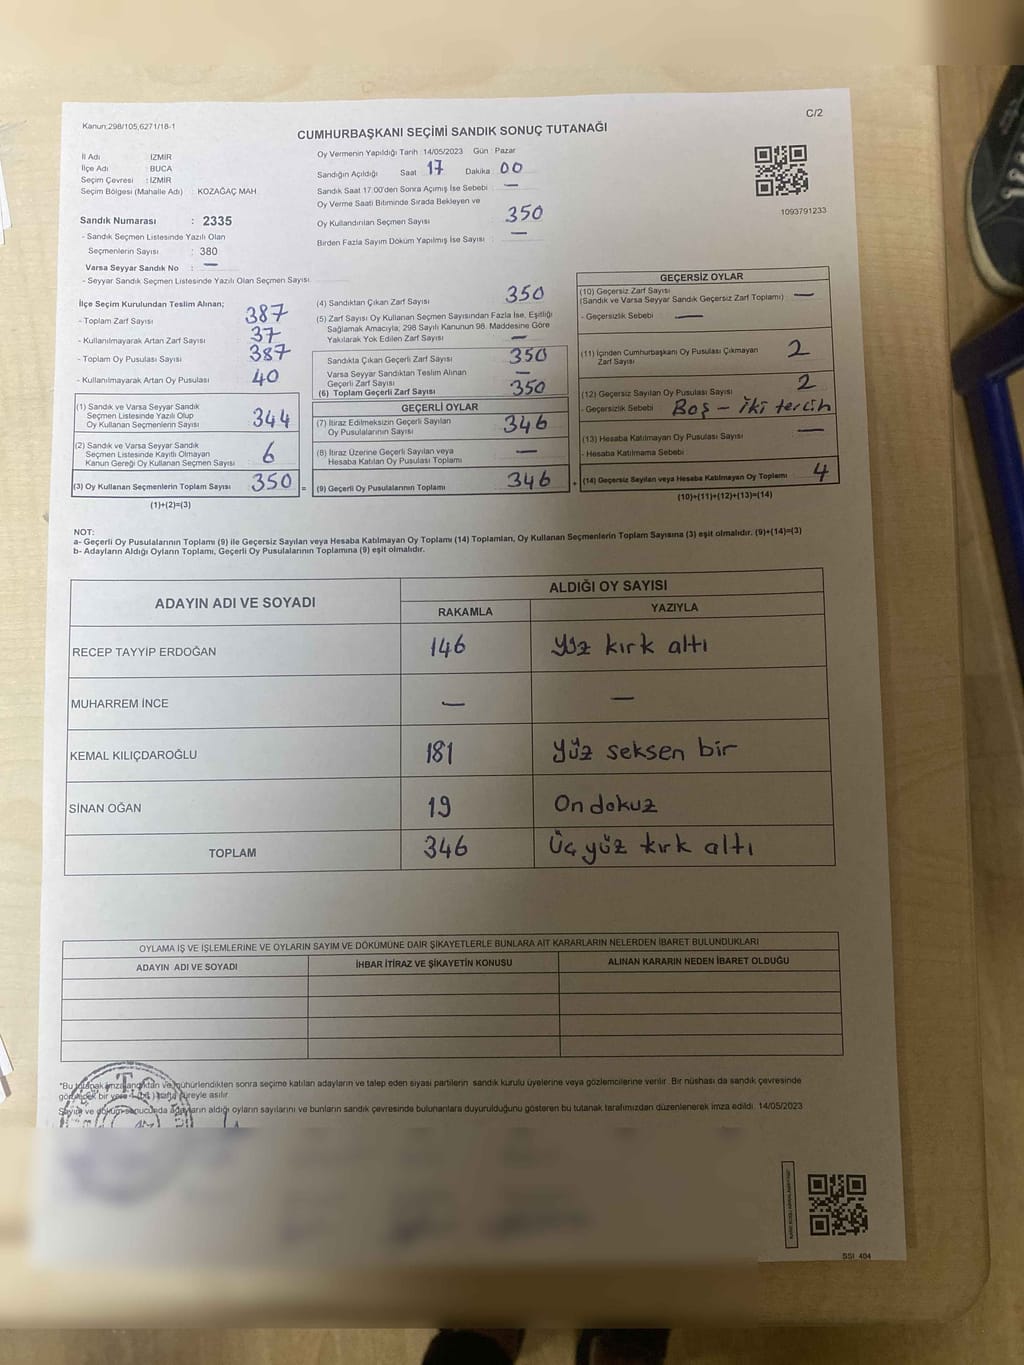 C/2
Kanun;298/105,6271/18-1
CUMHURBAŞKANI SEÇİMİ SANDIK SONUÇ TUTANAĞI
İl Adı : İZMİR
İlçe Adı : BUCA
Seçim Çevresi : İZMİR
Seçim Bölgesi (Mahalle Adı) : KOZAĞAÇ MAH
Sandık Numarası : 2335
- Sandık Seçmen Listesinde Yazılı Olan
Seçmenlerin Sayısı : 380
Varsa Seyyar Sandık No : —
- Seyyar Sandık Seçmen Listesinde Yazılı Olan Seçmen Sayısı
Oy Vermenin Yapıldığı Tarih : 14/05/2023 Gün : Pazar
Sandığın Açıldığı Saat 17 Dakika 00
Sandık Saat 17:00'den Sonra Açımış İse Sebebi : —
Oy Verme Saati Bitiminde Sırada Bekleyen ve
Oy Kullandırılan Seçmen Sayısı 350
Birden Fazla Sayım Döküm Yapılmış İse Sayısı : —
1093791233
İlçe Seçim Kurulundan Teslim Alınan;
- Toplam Zarf Sayısı 387
- Kullanılmayarak Artan Zarf Sayısı 37
- Toplam Oy Pusulası Sayısı 387
- Kullanılmayarak Artan Oy Pusulası 40
(1) Sandık ve Varsa Seyyar Sandık
Seçmen Listesinde Yazılı Olup
Oy Kullanan Seçmenlerin Sayısı 344
(2) Sandık ve Varsa Seyyar Sandık
Seçmen Listesinde Kayıtlı Olmayan
Kanun Gereği Oy Kullanan Seçmen Sayısı 6
(3) Oy Kullanan Seçmenlerin Toplam Sayısı 350 =
(1)+(2)=(3)
(4) Sandıktan Çıkan Zarf Sayısı 350
(5) Zarf Sayısı Oy Kullanan Seçmen Sayısından Fazla İse, Eşitliği
Sağlamak Amacıyla, 298 Sayılı Kanunun 98. Maddesine Göre
Yakılarak Yok Edilen Zarf Sayısı —
Sandıkta Çıkan Geçerli Zarf Sayısı 350
Varsa Seyyar Sandıktan Teslim Alınan
Geçerli Zarf Sayısı —
(6) Toplam Geçerli Zarf Sayısı 350
GEÇERLİ OYLAR
(7) İtiraz Edilmeksizin Geçerli Sayılan
Oy Pusulalarının Sayısı 346
(8) İtiraz Üzerine Geçerli Sayılan veya
Hesaba Katılan Oy Pusulası Toplamı —
(9) Geçerli Oy Pusulalarının Toplamı 346 +
GEÇERSİZ OYLAR
(10) Geçersiz Zarf Sayısı
(Sandık ve Varsa Seyyar Sandık Geçersiz Zarf Toplamı) —
- Geçersizlik Sebebi : —
(11) İçinden Cumhurbaşkanı Oy Pusulası Çıkmayan
Zarf Sayısı 2
(12) Geçersiz Sayılan Oy Pusulası Sayısı 2
- Geçersizlik Sebebi : Boş - iki tercih
(13) Hesaba Katılmayan Oy Pusulası Sayısı —
- Hesaba Katılmama Sebebi
(14) Geçersiz Sayılan veya Hesaba Katılmayan Oy Toplamı 4
(10)+(11)+(12)+(13)=(14)
NOT:
a- Geçerli Oy Pusulalarının Toplamı (9) ile Geçersiz Sayılan veya Hesaba Katılmayan Oy Toplamı (14) Toplamları, Oy Kullanan Seçmenlerin Toplam Sayısına (3) eşit olmalıdır. (9)+(14)=(3)
b- Adayların Aldığı Oyların Toplamı, Geçerli Oy Pusulalarının Toplamına (9) eşit olmalıdır.
ADAYIN ADI VE SOYADI ALDIĞI OY SAYISI
RAKAMLA YAZIYLA
RECEP TAYYİP ERDOĞAN 146 Yüz kırk altı
MUHARREM İNCE — —
KEMAL KILIÇDAROĞLU 181 Yüz seksen bir
SİNAN OĞAN 19 On dokuz
TOPLAM 346 Üç yüz kırk altı
OYLAMA İŞ VE İŞLEMLERİNE VE OYLARIN SAYIM VE DÖKÜMÜNE DAİR ŞİKAYETLERLE BUNLARA AİT KARARLARIN NELERDEN İBARET BULUNDUKLARI
ADAYIN ADI VE SOYADI İHBAR İTİRAZ VE ŞİKAYETİN KONUSU ALINAN KARARIN NEDEN İBARET OLDUĞU
*Bu tutanak imzalandıktan ve mühürlendikten sonra seçime katılan adayların ve talep eden siyasi partilerin sandık kurulu üyelerine veya gözlemcilerine verilir. Bir nüshası da sandık çevresinde
görülebilecek bir yere 1 (bir) hafta süreyle asılır
Sayım ve döküm sonucunda adayların aldığı oyların sayılarını ve bunların sandık çevresinde bulunanlara duyurulduğunu gösteren bu tutanak tarafımızdan düzenlenerek imza edildi. 14/05/2023
SSI_404